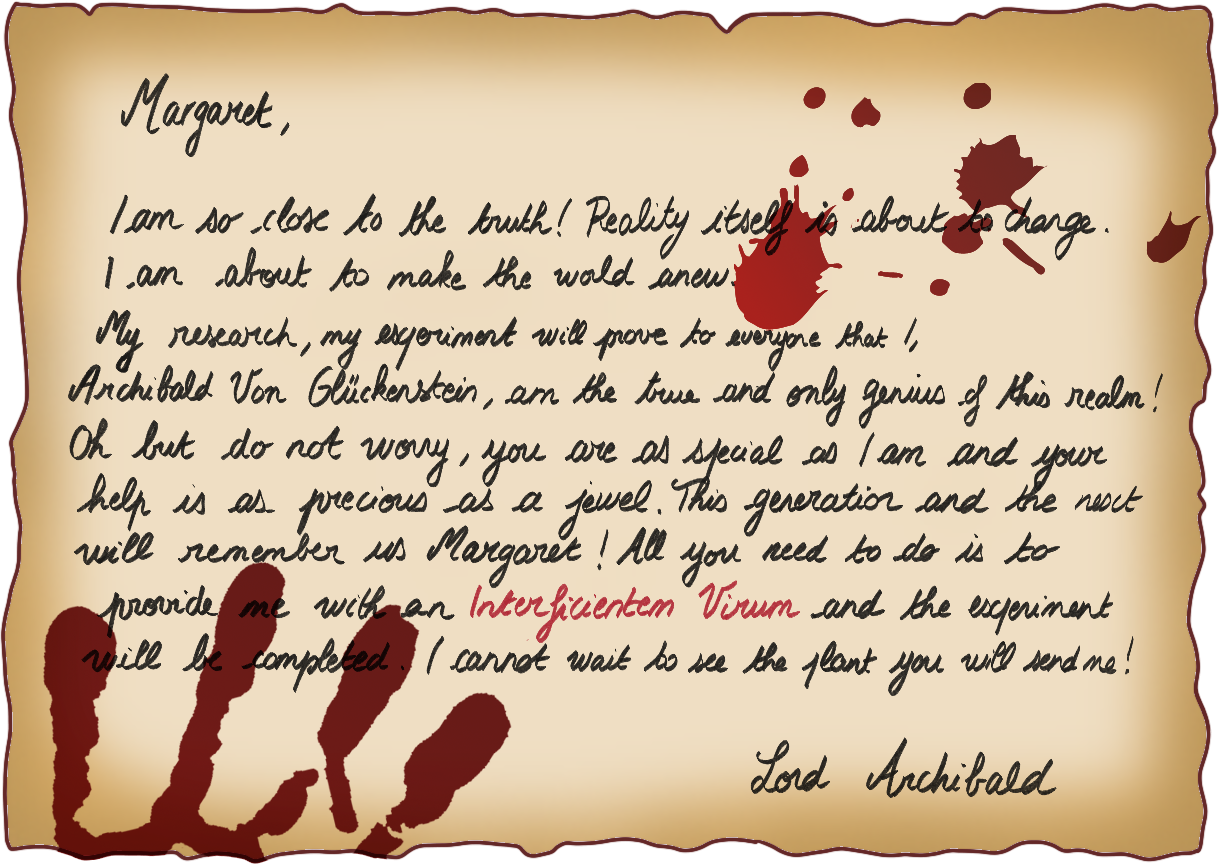 Margaret,
I am so close to the truth! Reality itself is about to change.
I am about to make the wold anew.
My research, my experiment will prove to everyone that I,
Archibald Von Glückenstein, am the true and only genius of this realm!
Oh but do not worry, you are as special as I am and your
help is as precious as a jewel. This generation and the next
will remember us Margaret! All you need to do is to
provide me with an Interficientem Virum and the experiment
will be completed. I cannot wait to see the plant you will send me!
Lord Archibald